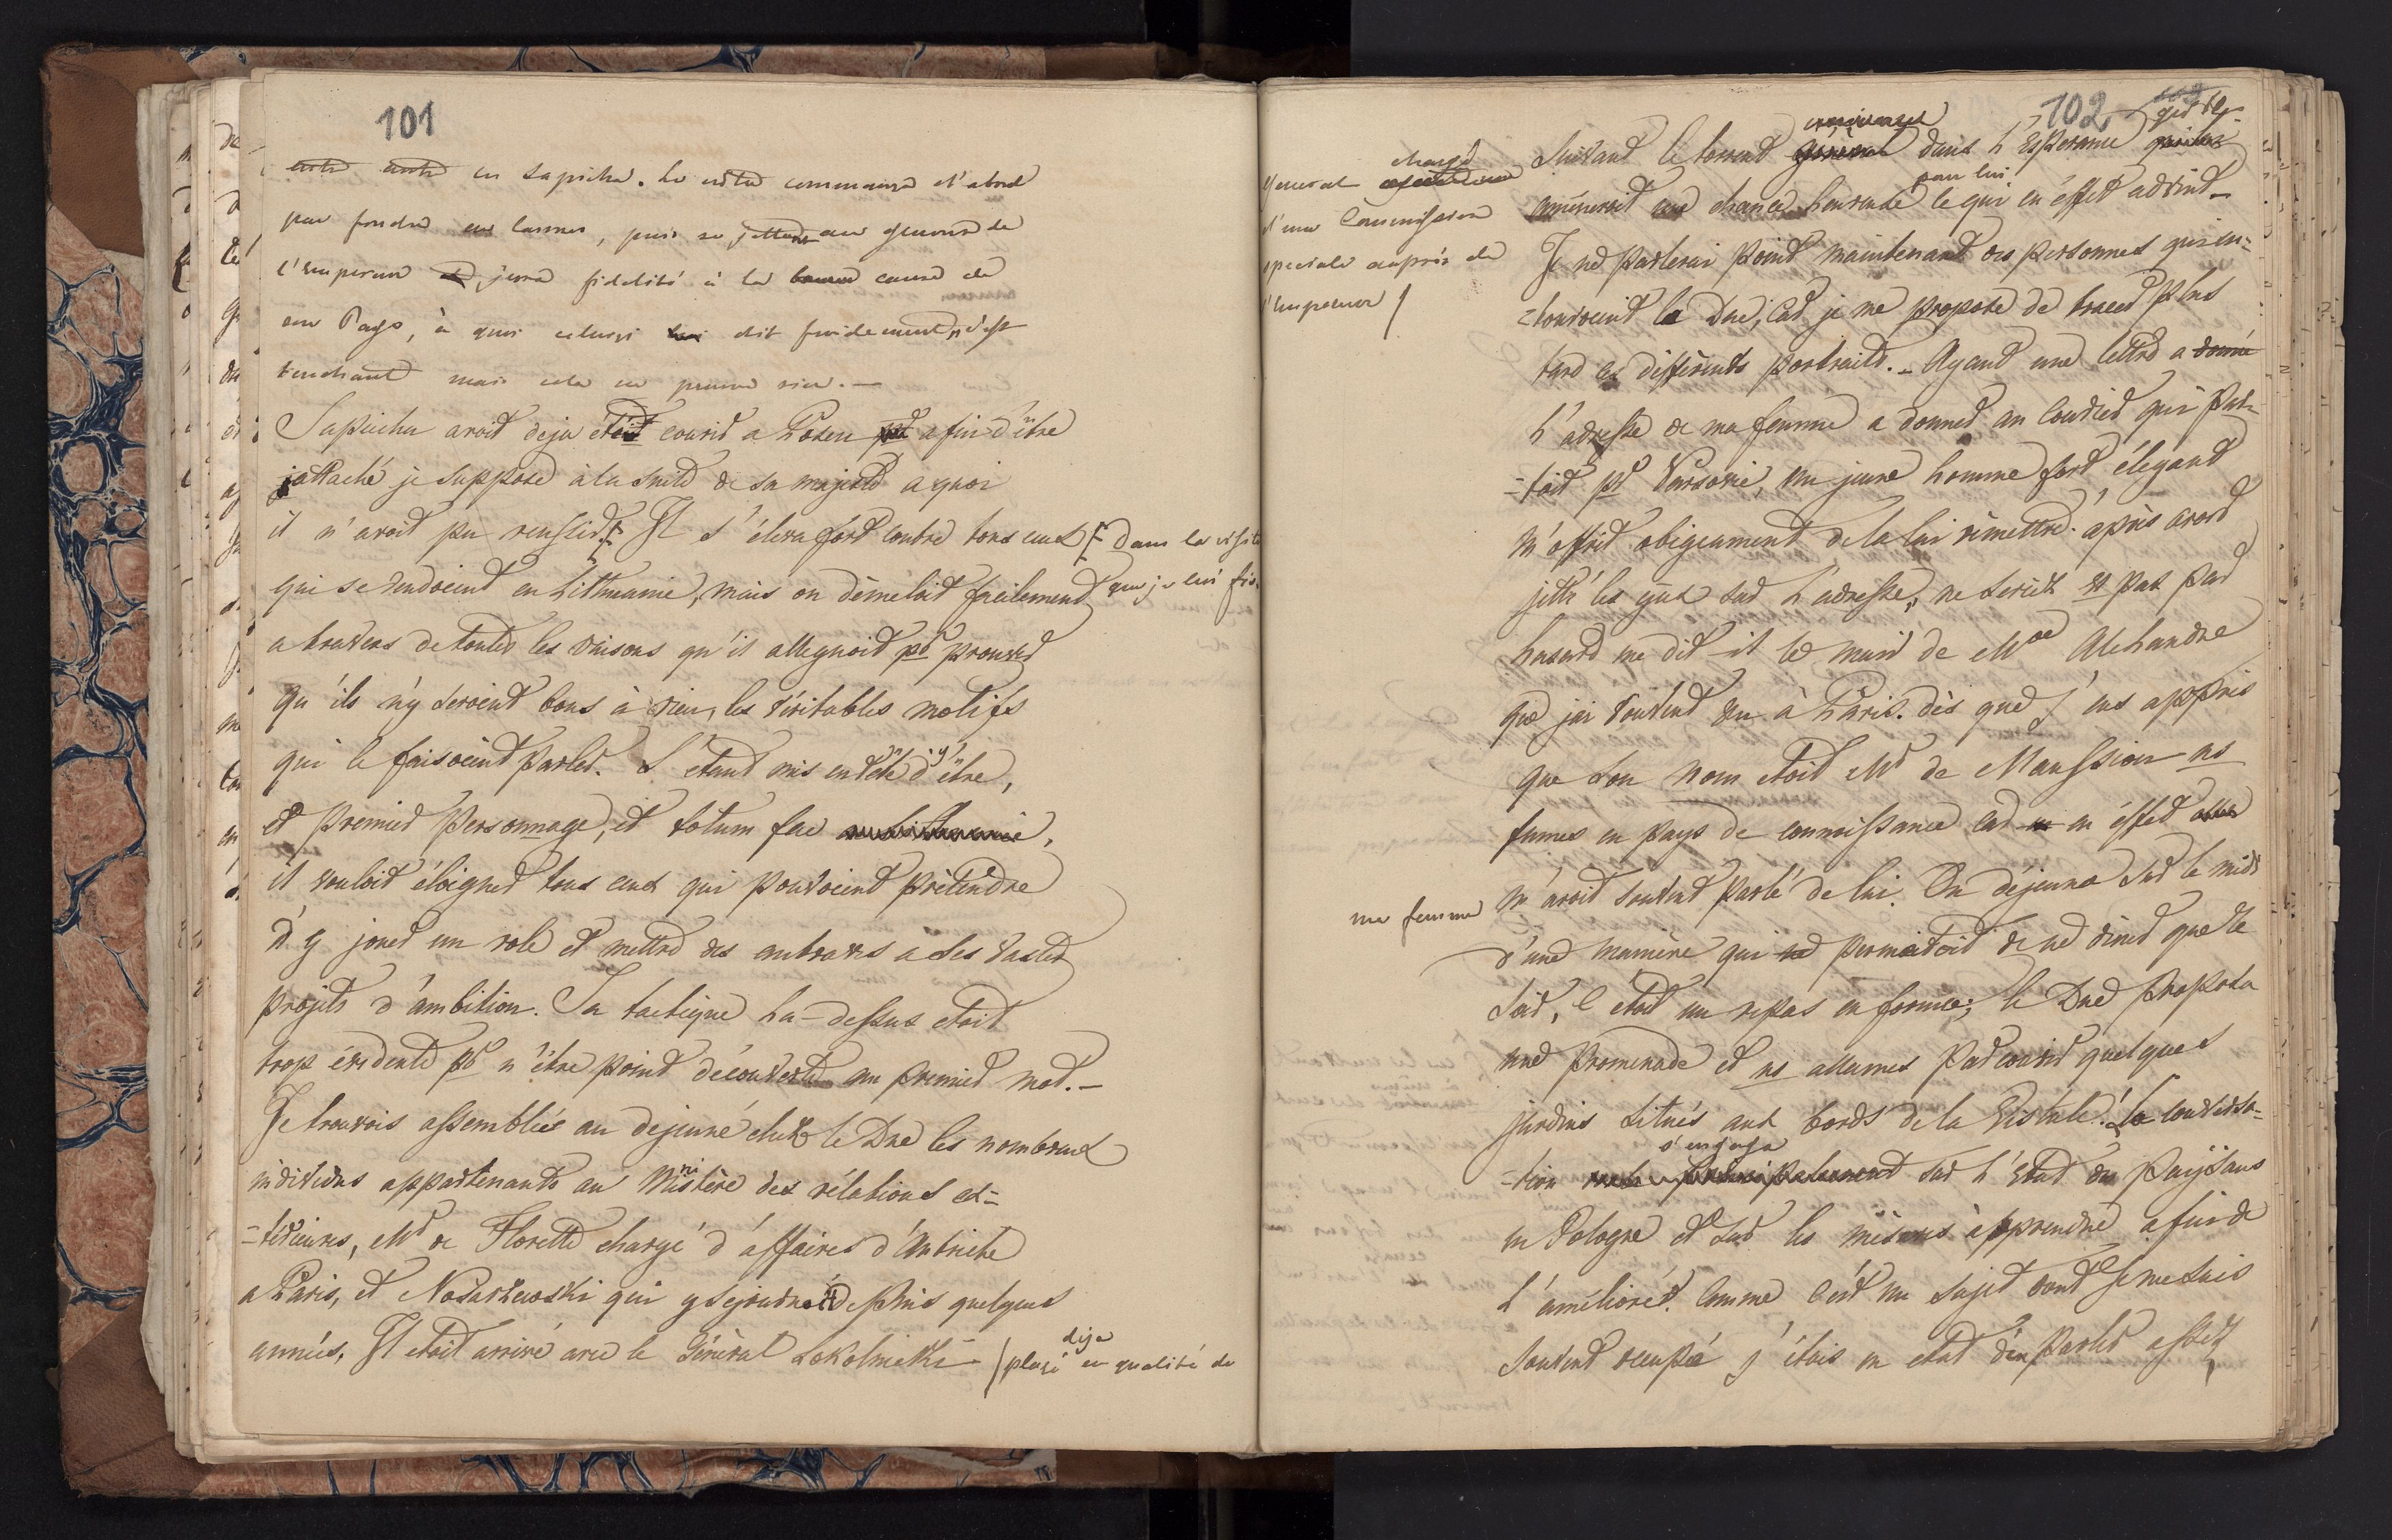 101
en Sapieha. Le notre commença d'abord
par fondre en larmes, puis se jettant aux genoux de
l'Empereur jura fidelité à la bonne cause de
son Pays, à quoi celuici lui dit froidement, c'est
touchant mais cela ne prouve rien. —
Sapieha avoit deja été courir a Posen afin d'être
attaché je suppose à la suite de sa majesté a quoi
il n'avoit pu reussir. Il s'éleva fort contre tous ceux
Dans la visite
que je lui fis.
qui se rendoient en Lithuanie, mais on dèmeloit facilement
a travers de toutes les raisons qu'il alleguoit pr prouver
qu'ils n'y seroient bons à rien, les véritables motifs
qui le faisoient parler. S'étant mis en tête d'y être,
et premier personnage, et totum fac
il vouloit éloigner tous ceux qui pouvoient prètendre
d'y jouer un role et mettre des entraves à ses vastes
projets d'ambition. Sa tactique la-dessus etoit
trop évidente pr n'être point découverte au premier mot. —
Je trouvois assemblés au dejeuné chez le Duc les nombreux
individus appartenants au Ministère des rélations ex=
=térieures, Mr de Florette chargé d'affaires d'Autriche
a Paris, et Nosarzewski qui y sejournoit depuis quelques
années. Il etoit arrivé avec le Général Sokolnicki
deja
placé en qualité de
102
chargé
General
d'une Commission
speciale auprès de
l'Empereur
Suivant le torrent général dans l'Espérance
pour lui
amèneroit une chance heureuse le qui en éffet advint —
Je ne parlerai point maintenant des personnes qui en=
=touroient le Duc, car je me propose de tracer plus
tard les différents portraits. — Ayant une lettre a donné
l'adresse de ma femme a donner au Courier qui par=
=toit pr Varsovie, un jeune homme fort élegant
m'offrit obigeament de la lui rèmettre. après avoir
jetté les yeux sur l'adresse, ne seriez vs pas par
hasard me dit-il le mari de Mme Alexandre
que j'ai souvent vu à Paris. dès que j'eus appris
que son nom etoit Mr de Maussion ns
fumes en pays de connoissance car en éffet
ma femme
m'avoit souvent parlé de lui. On déjeuna sur le midi
d'une manière qui permettoit de ne diner que le
soir, c'etoit un repas en forme; le Duc proposa
une promenade et ns allames parcourir quelques
jardins situés aux bords de la Vistule. La conversa=
s'engagea
=tion sur l'etat des Paÿsans
en Pologne et sur les mésures à prendre afin de
l'améliorer. Comme c'est un sujet dont je me suis
souvent occupé j'étois en etat d'en parler assez